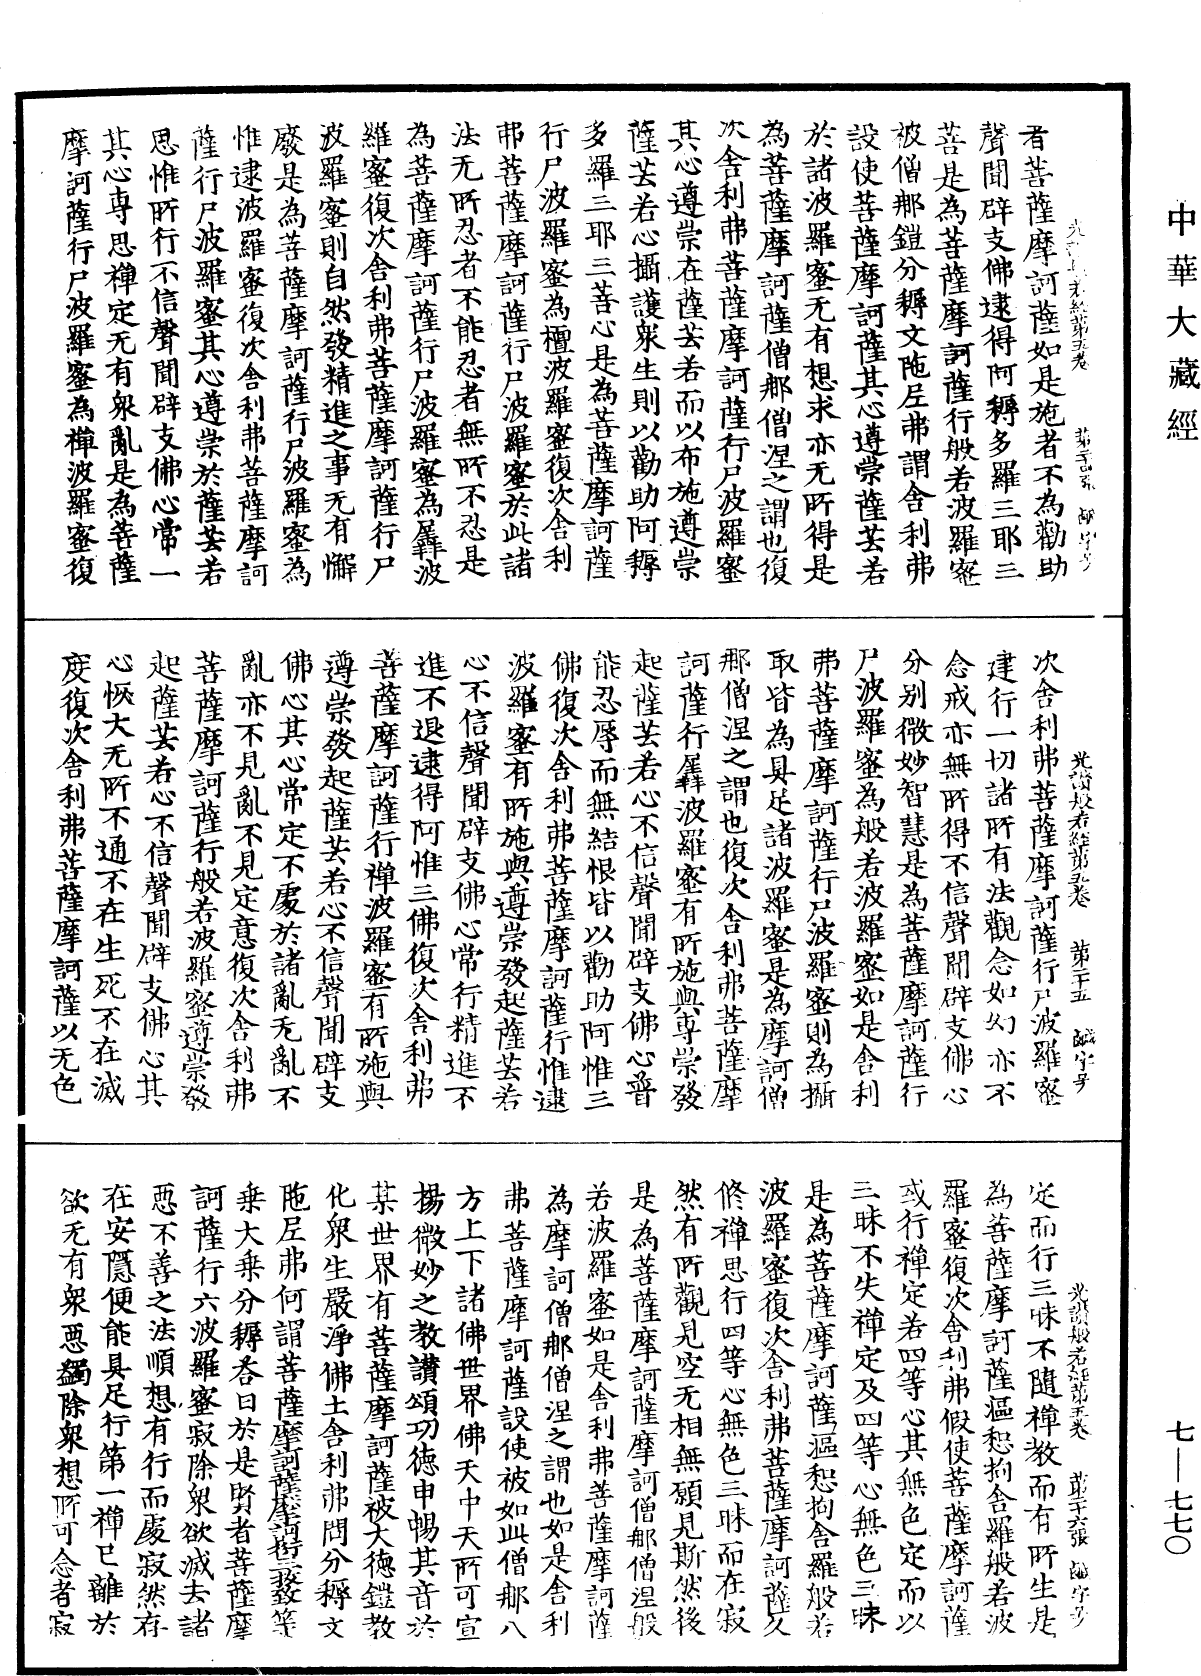 中華大藏經
者菩薩摩訶薩如是施者不為勸助
聲聞辟支佛逮得阿耨多羅三耶三
菩是為菩薩摩訶薩行般若波羅蜜
被僧那鎧分耨文陁尼弗謂舍利弗
設使菩薩摩訶薩其心遵崇薩芸若
於諸波羅蜜无有想求亦无所得是
為菩薩摩訶薩僧那僧涅之謂也復
次舍利弗菩薩摩訶薩行尸波羅蜜
其心遵崇在薩芸若而以布施遵崇
薩芸若心攝護衆生則以勸助阿耨
多羅三耶三菩心是為菩薩摩訶薩
行尸波羅蜜為檀波羅蜜復次舍利
弗菩薩摩訶薩行尸波羅蜜於此諸
法无所忍者不能忍者無所不忍是
為菩薩摩訶薩行尸波羅蜜為羼波
羅蜜復次舍利弗菩薩摩訶薩行尸
波羅蜜則自然發精進之事无有懈
廢是為菩薩摩訶薩行尸波羅蜜為
惟逮波羅蜜復次舍利弗菩薩摩訶
薩行尸波羅蜜其心遵崇於薩芸若
思惟所行不信聲聞辟支佛心常一
其心專思禪定无有衆亂是為菩薩
摩訶薩行尸波羅蜜為禪波羅蜜復
光讚般若經第五卷 第二十五 鹹字号
次舍利弗菩薩摩訶薩行尸波羅蜜
建行一切諸所有法觀念如幻亦不
念戒亦無所得不信聲聞辟支佛心
分别微妙智慧是為菩薩摩訶薩行
尸波羅蜜為般若波羅蜜如是舍利
弗菩薩摩訶薩行尸波羅蜜則為攝
取皆為具足諸波羅蜜是為摩訶僧
那僧涅之謂也復次舍利弗菩薩摩
訶薩行羼波羅蜜有所施與專崇發
起薩芸若心不信聲聞辟支佛心普
能忍辱而無結根皆以勸助阿惟三
佛復次舍利弗菩薩摩訶薩行惟逮
波羅蜜有所施與遵崇發起薩芸若
心不信聲聞辟支佛心常行精進不
進不退逮得阿惟三佛復次舍利弗
菩薩摩訶薩行禪波羅蜜有所施與
遵崇發起薩芸若心不信聲聞辟支
佛心其心常定不處於諸亂无亂不
亂亦不見亂不見定意復次舍利弗
菩薩摩訶薩行般若波羅蜜遵崇發
起薩芸若心不信聲聞辟支佛心其
心恢大无所不通不在生死不在滅
度復次舍利弗菩薩摩訶薩以无色
光讚般若經第五卷 第二十六張 鹹字号
定而行三昧不隨禪教而有所生是
為菩薩摩訶薩漚惒拘舍羅般若波
羅蜜復次舍利弗假使菩薩摩訶薩
或行禪定若四等心其無色定而以
三昧不失禪定及四等心無色三昧
是為菩薩摩訶薩漚惒拘舍羅般若
波羅蜜復次舍利弗菩薩摩訶薩久
修禪思行四等心無色三昧而在寂
然有所觀見空无相無願見斯然後
是為菩薩摩訶薩摩訶僧那僧涅般
若波羅蜜如是舍利弗菩薩摩訶薩
為摩訶僧那僧涅之謂也如是舍利
弗菩薩摩訶薩設使被如此僧那八
方上下諸佛世界佛天中天所可宣
揚微妙之教讚頌功德申暢其音於
某世界有菩薩摩訶薩被大德鎧教
化衆生嚴淨佛土舍利弗問分耨文
陁尼弗何謂菩薩摩訶薩摩訶衍三拔等
乗大乗分耨荅曰於是賢者菩薩摩
訶薩行六波羅蜜寂除衆欲滅去諸
惡不善之法順想有行而處寂然存
在安隱便能具足行第一禪已離於
欲无有衆惡蠲除衆想所可念者寂
七—七七〇